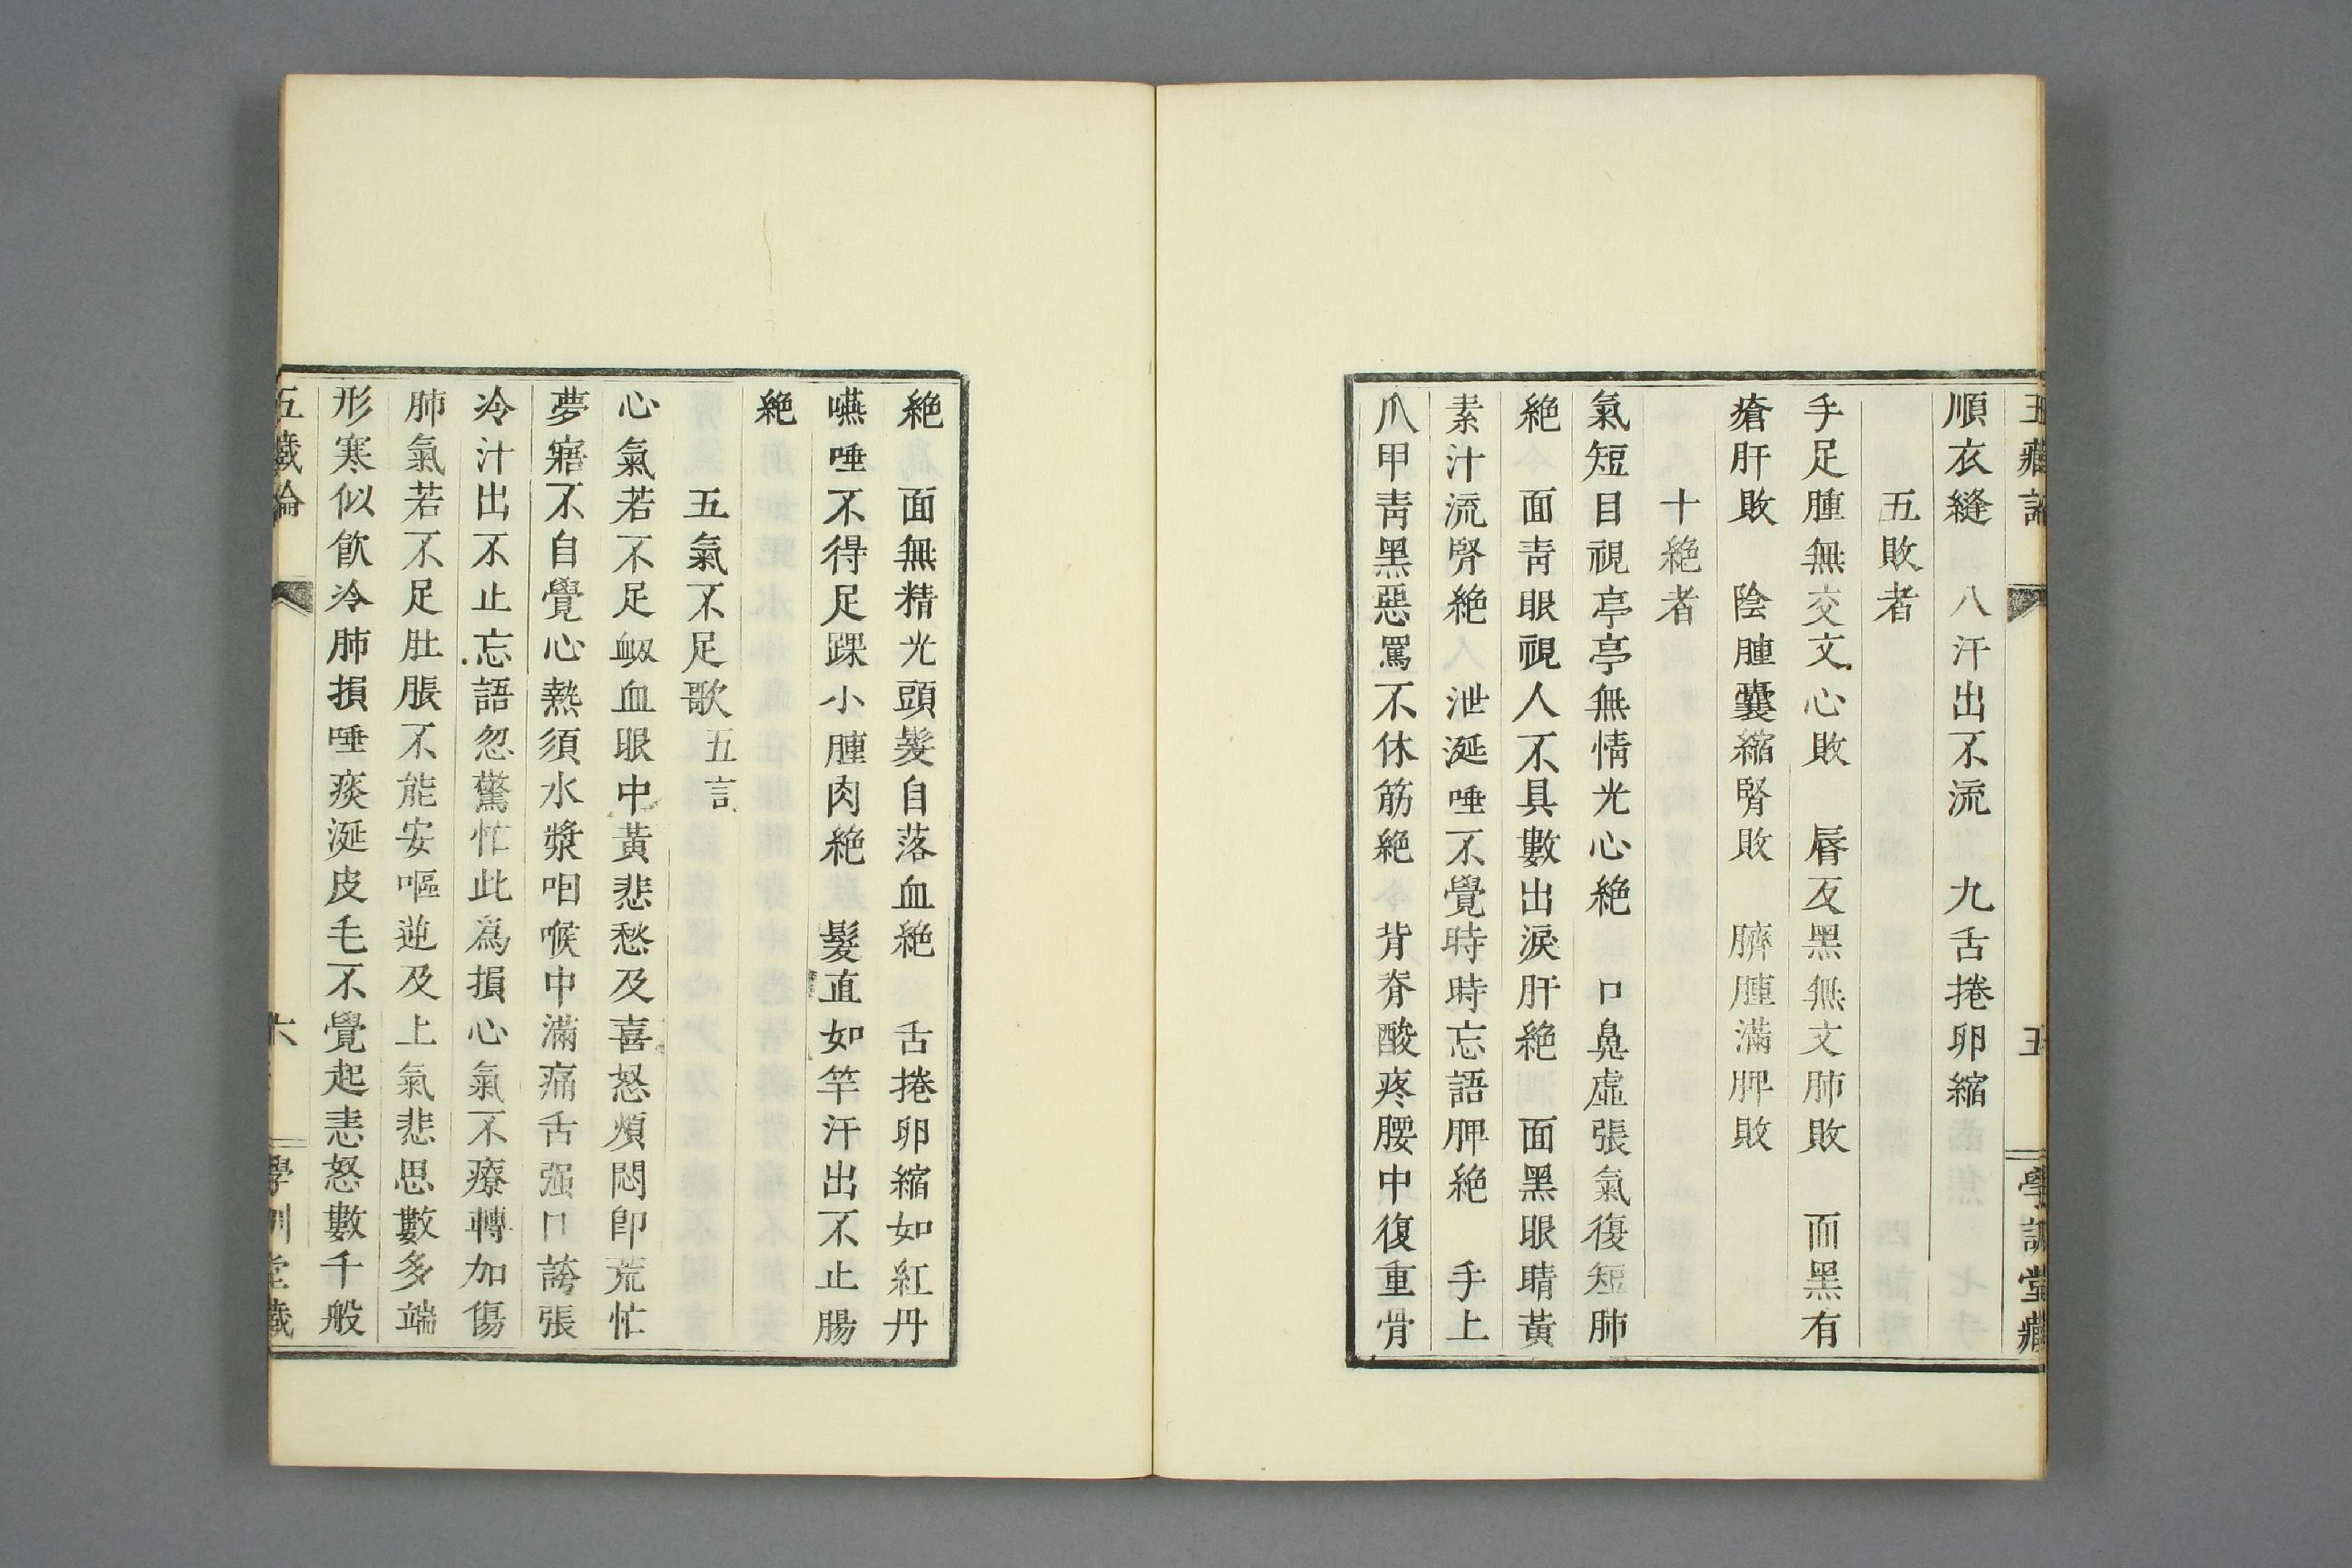 五藏論
五
學訓堂藏
順衣縫　八汗出不流　九舌捲卵縮
五敗者
手足腫無交文心敗　脣反黑無文肺敗　面黑有
瘡肝敗　陰腫囊縮腎敗　臍腫滿脾敗
十絕者
氣短目視亭亭無情光心絕　口鼻虛張氣復短肺
絕　面靑眼視人不具數出淚肝絕　面黑眼睛黃
素汁流腎絕　泄涎唾不覺時時忘語脾絕　手上
爪甲靑黑惡罵不休筋絕　背脊酸疼腰中復重骨
絕　面無精光頭髮自落血絕　舌捲卵縮如紅丹
嚥唾不得足踝小腫肉絕　髮直如竿汗出不止腸
絕
五氣不足歌五言
心氣若不足衂血眼中黃悲愁及喜怒煩悶卽荒忙
夢寤不自覺心熱須水漿咽喉中滿痛舌强口誇張
冷汁出不止忘語忽驚忙此爲損心氣不療轉加傷
肺氣若不足肚脹不能安嘔逆及上氣悲思數多端
形寒似飮冷肺損唾痰涎皮毛不覺起恚怒數千般
五藏論
六
學訓堂藏